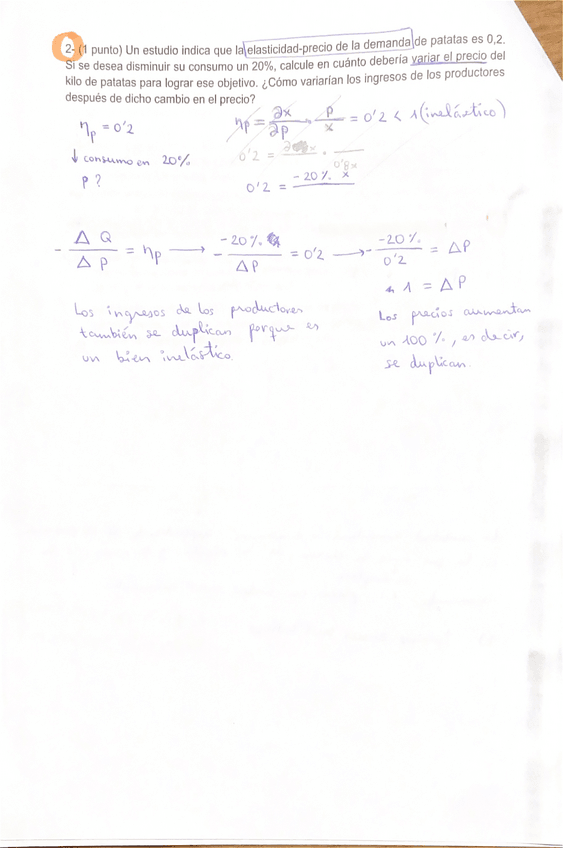 2- (1 punto) Un estudio indica que la elasticidad-precio de la demanda de patatas es 0,2.
Si se desea disminuir su consumo un 20%, calcule en cuánto debería variar el precio del
kilo de patatas para lograr ese objetivo. ¿Cómo variarían los ingresos de los productores
después de dicho cambio en el precio?
ηp = 0'2
ηp = ∂x/∂p · p/x = 0'2 < 1 (inelástico)
↓ consumo en 20%
0'2 =
0'8x
p?
0'2 = -20% x
- ΔQ/ΔP = ηp → - -20%/ΔP = 0'2 → - -20%/0'2 = ΔP
1 = ΔP
Los ingresos de los productores
también se duplican porque es
un bien inelástico.
Los precios aumentan
un 100%, es decir,
se duplican.